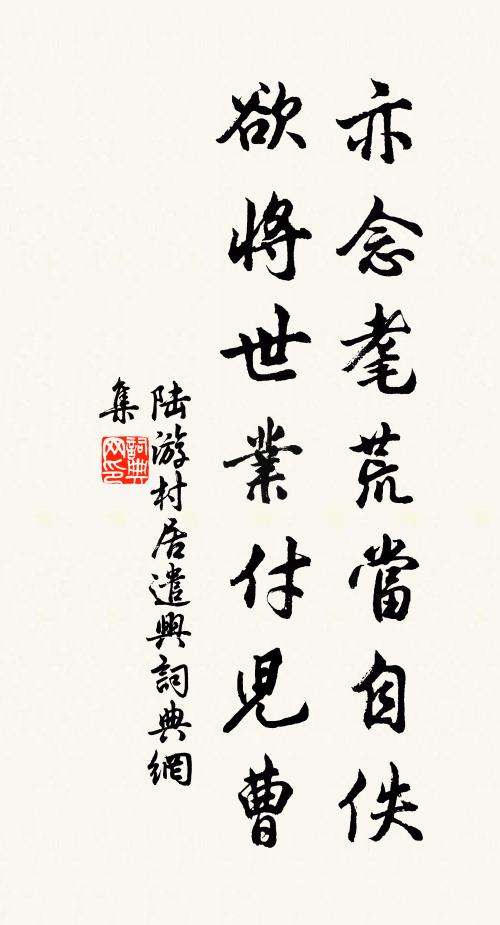 亦念耄荒當自佚
欲將世業付兒曹
陸游村居遣興詞典網
集
詞典
网印